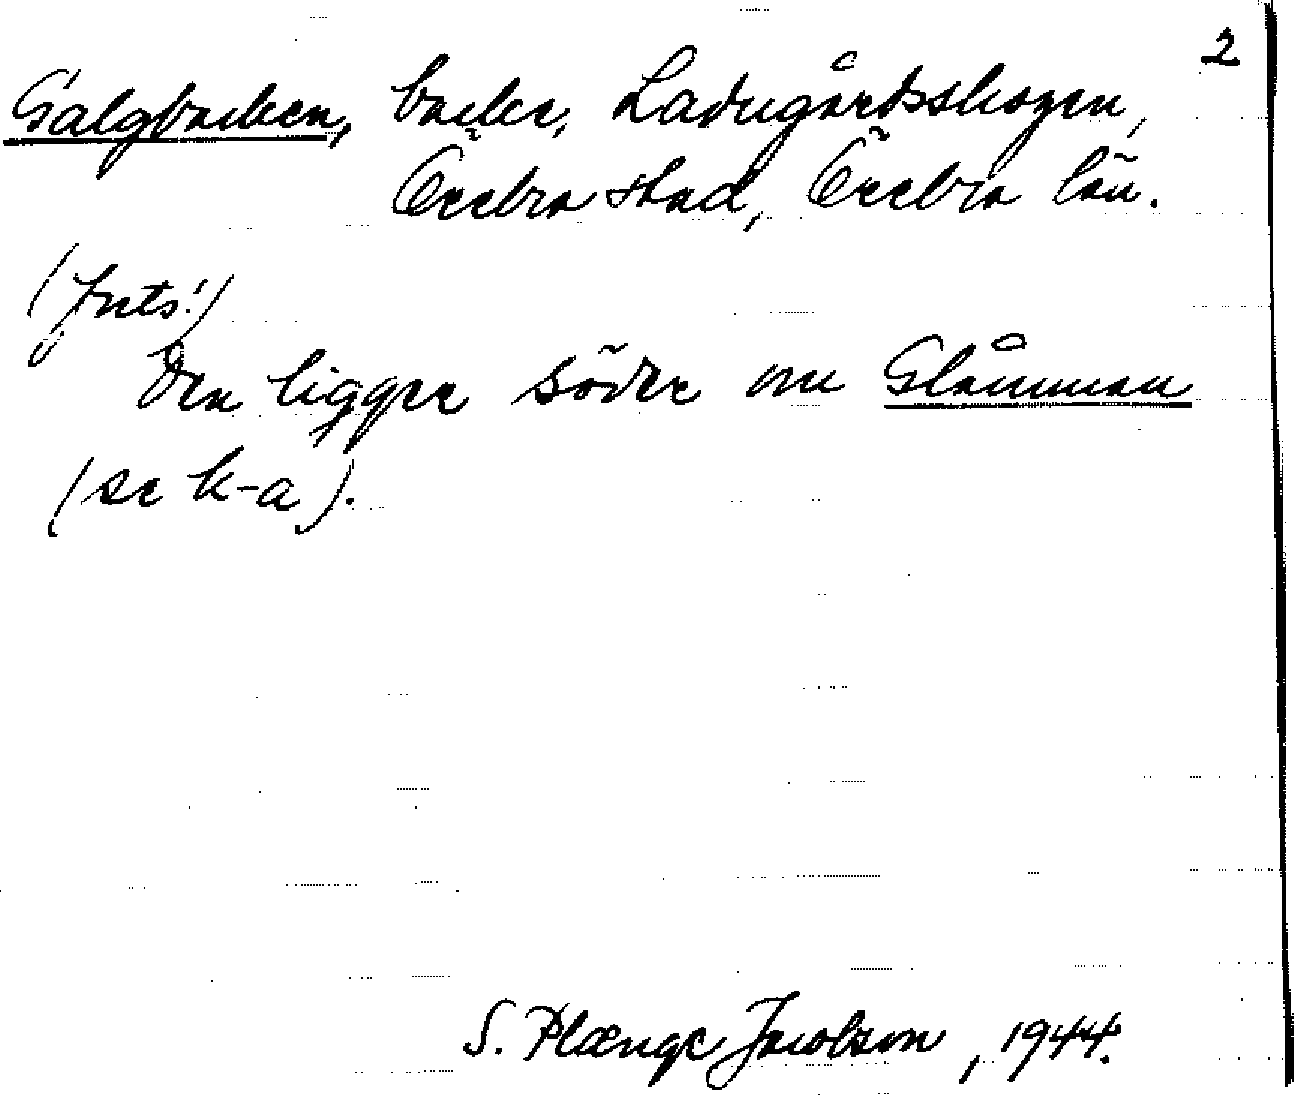 2
Galgbacken, backe, Ladugårdsskogen,
Örebro stad, Örebro län.
(forts.)
Den ligger söder om Glåmman
(se k-a).
S. Plænge Jacobson, 1944.